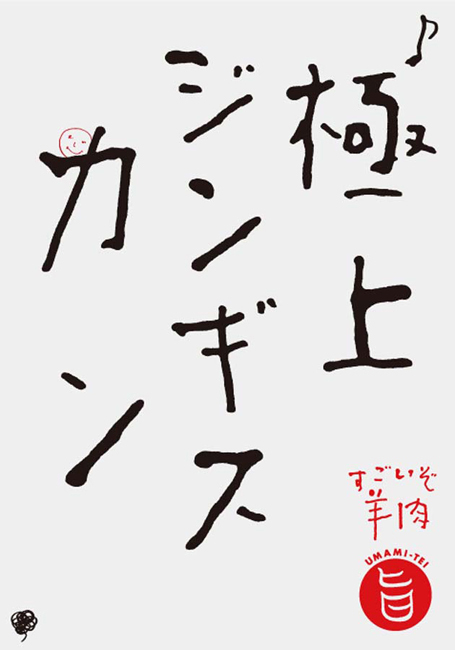 極上
ジンギス
カン
すごいぞ
羊肉
UMAMI-TEI
旨